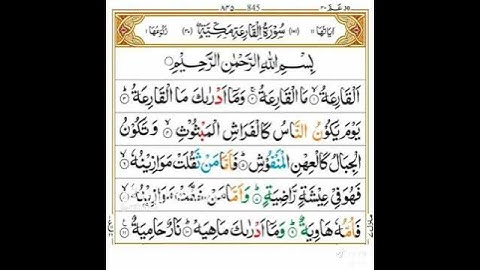 ٨٤٥ 845 عم ٣٠
اٰیَاتُهَا ١١ (١٠١) سُوْرَةُ الْقَارِعَةِ مَكِّيَّةٌ (٣٠) رُكُوْعُهَا ١
بِسْمِ اللّٰهِ الرَّحْمٰنِ الرَّحِيْمِ
اَلْقَارِعَةُ ۙ مَا الْقَارِعَةُ ۚ وَمَاۤ اَدْرٰىكَ مَا الْقَارِعَةُ ؕ
يَوْمَ يَكُوْنُ النَّاسُ كَالْفَرَاشِ الْمَبْثُوْثِ ۙ وَتَكُوْنُ
الْجِبَالُ كَالْعِهْنِ الْمَنْفُوْشِ ؕ فَاَمَّا مَنْ ثَقُلَتْ مَوَازِيْنُهٗ ۙ
فَهُوَ فِيْ عِيْشَةٍ رَّاضِيَةٍ ؕ وَاَمَّا مَنْ خَفَّتْ مَوَازِيْنُهٗ ۙ
فَاُمُّهٗ هَاوِيَةٌ ؕ وَمَاۤ اَدْرٰىكَ مَاهِيَهْ ؕ نَارٌ حَامِيَةٌ